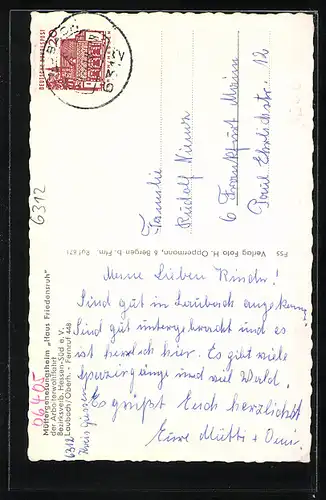 DEUTSCHE BUNDESPOST
6312
Familie
Rudolf
6 Frankfurt Main
Paul Ehrlichstr. 12
F55 Verlag Foto H. Oppermann, & Bergen b. Ffm. Ruf
Meine Lieben Kinder!
Sind gut in Laubach angekomm
Sind gut untergebracht und es
ist herrlich hier. Es gibt viele
Spaziergänge und viel Wald.
Es grüßt Euch herzlichst
Eure Mutti + Omi
06405
Müttergenesungsheim „Haus Friedensruh"
der Arbeiterwohlfahrt
Bezirksverb. Hessen-Süd e.V.
Laubach/Oberh. - Fernruf 448
6312 Kreis Giessen